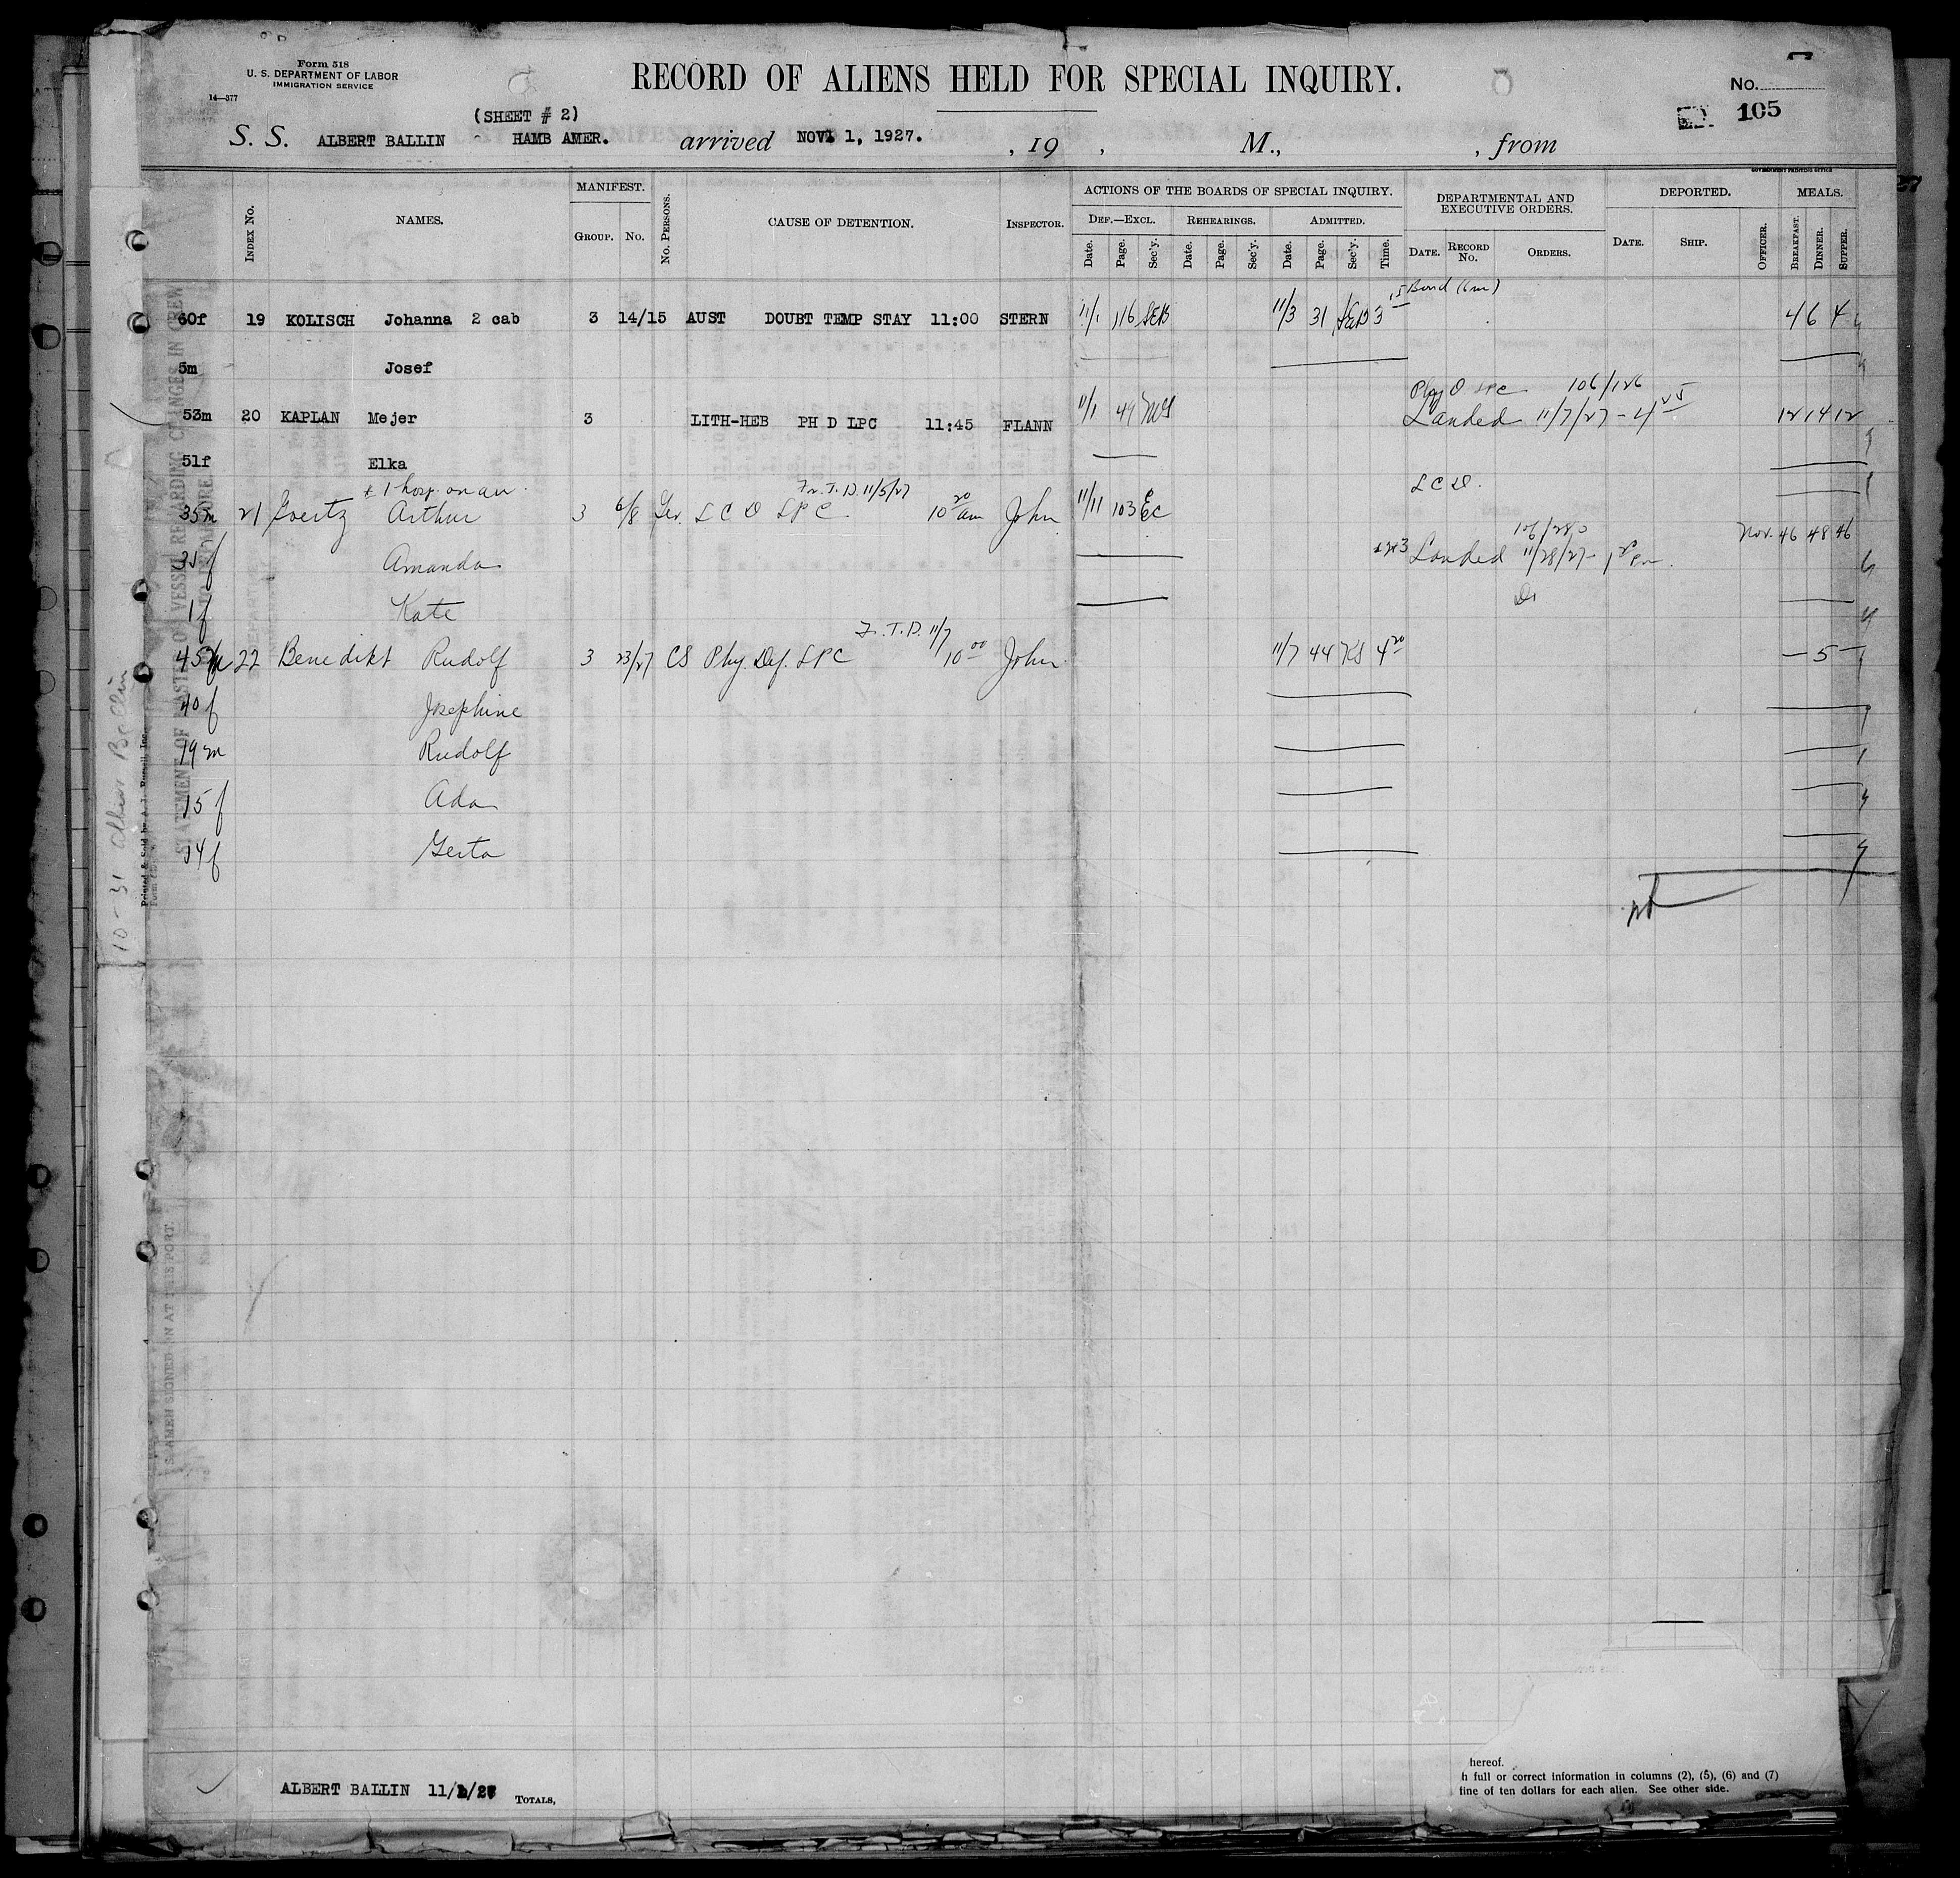 Form 518
U. S. DEPARTMENT OF LABOR
IMMIGRATION SERVICE
14—377
RECORD OF ALIENS HELD FOR SPECIAL INQUIRY.
No.
105
(SHEET # 2)
S. S. ALBERT BALLIN HAMB AMER. arrived NOV 1, 1927. , 19 , M., , from
GOVERNMENT PRINTING OFFICE
INDEX No. NAMES. MANIFEST. GROUP. No. No. PERSONS. CAUSE OF DETENTION. INSPECTOR. ACTIONS OF THE BOARDS OF SPECIAL INQUIRY. DEPARTMENTAL AND EXECUTIVE ORDERS. DEPORTED. MEALS.
DEF.—EXCL. REHEARINGS. ADMITTED.
Date. Page. Sec'y. Date. Page. Sec'y. Date. Page. Sec'y. Time. DATE. RECORD No. ORDERS. DATE. SHIP. OFFICER. BREAKFAST. DINNER. SUPPER.
Bond (6m)
60f 19 KOLISCH Johanna 2 cab 3 14/15 AUST DOUBT TEMP STAY 11:00 STERN 11/1 116 SEB 11/3 31 SEB 3 15 4 6 4
5m Josef
Phy D LPC 106/126
53m 20 KAPLAN Mejer 3 LITH-HEB PH D LPC 11:45 FLANN 11/1 49 Landed 11/7/27 - 12 14 12
51f Elka
+ 1 hosp. on arr. Fr. T. D. 11/5/27 L C D.
35m 21 Goertz Arthur 3 6/8 Ger. L C D L P C 10 20 am John 11/11 103 EC
106/280 Nov. 46 48 46
35f Amanda Landed 11/28/27-
1f Kate
Fr. T. D. 11/7
45m 22 Benedikt Rudolf 3 23/27 CS Phy. Def. LPC 10 00 John 11/7 44 KS 4 20 — 5 —
40f Josephine
19m Rudolf
15f Ada
14f Gerta
10-31 Albert Ballin
STATEMENT OF MASTER OF VESSEL REGARDING CHANGES IN CREW
SEAMEN SIGNED ON AT THIS PORT.
hereof.
h full or correct information in columns (2), (5), (6) and (7)
fine of ten dollars for each alien. See other side.
ALBERT BALLIN 11/1/27 TOTALS,